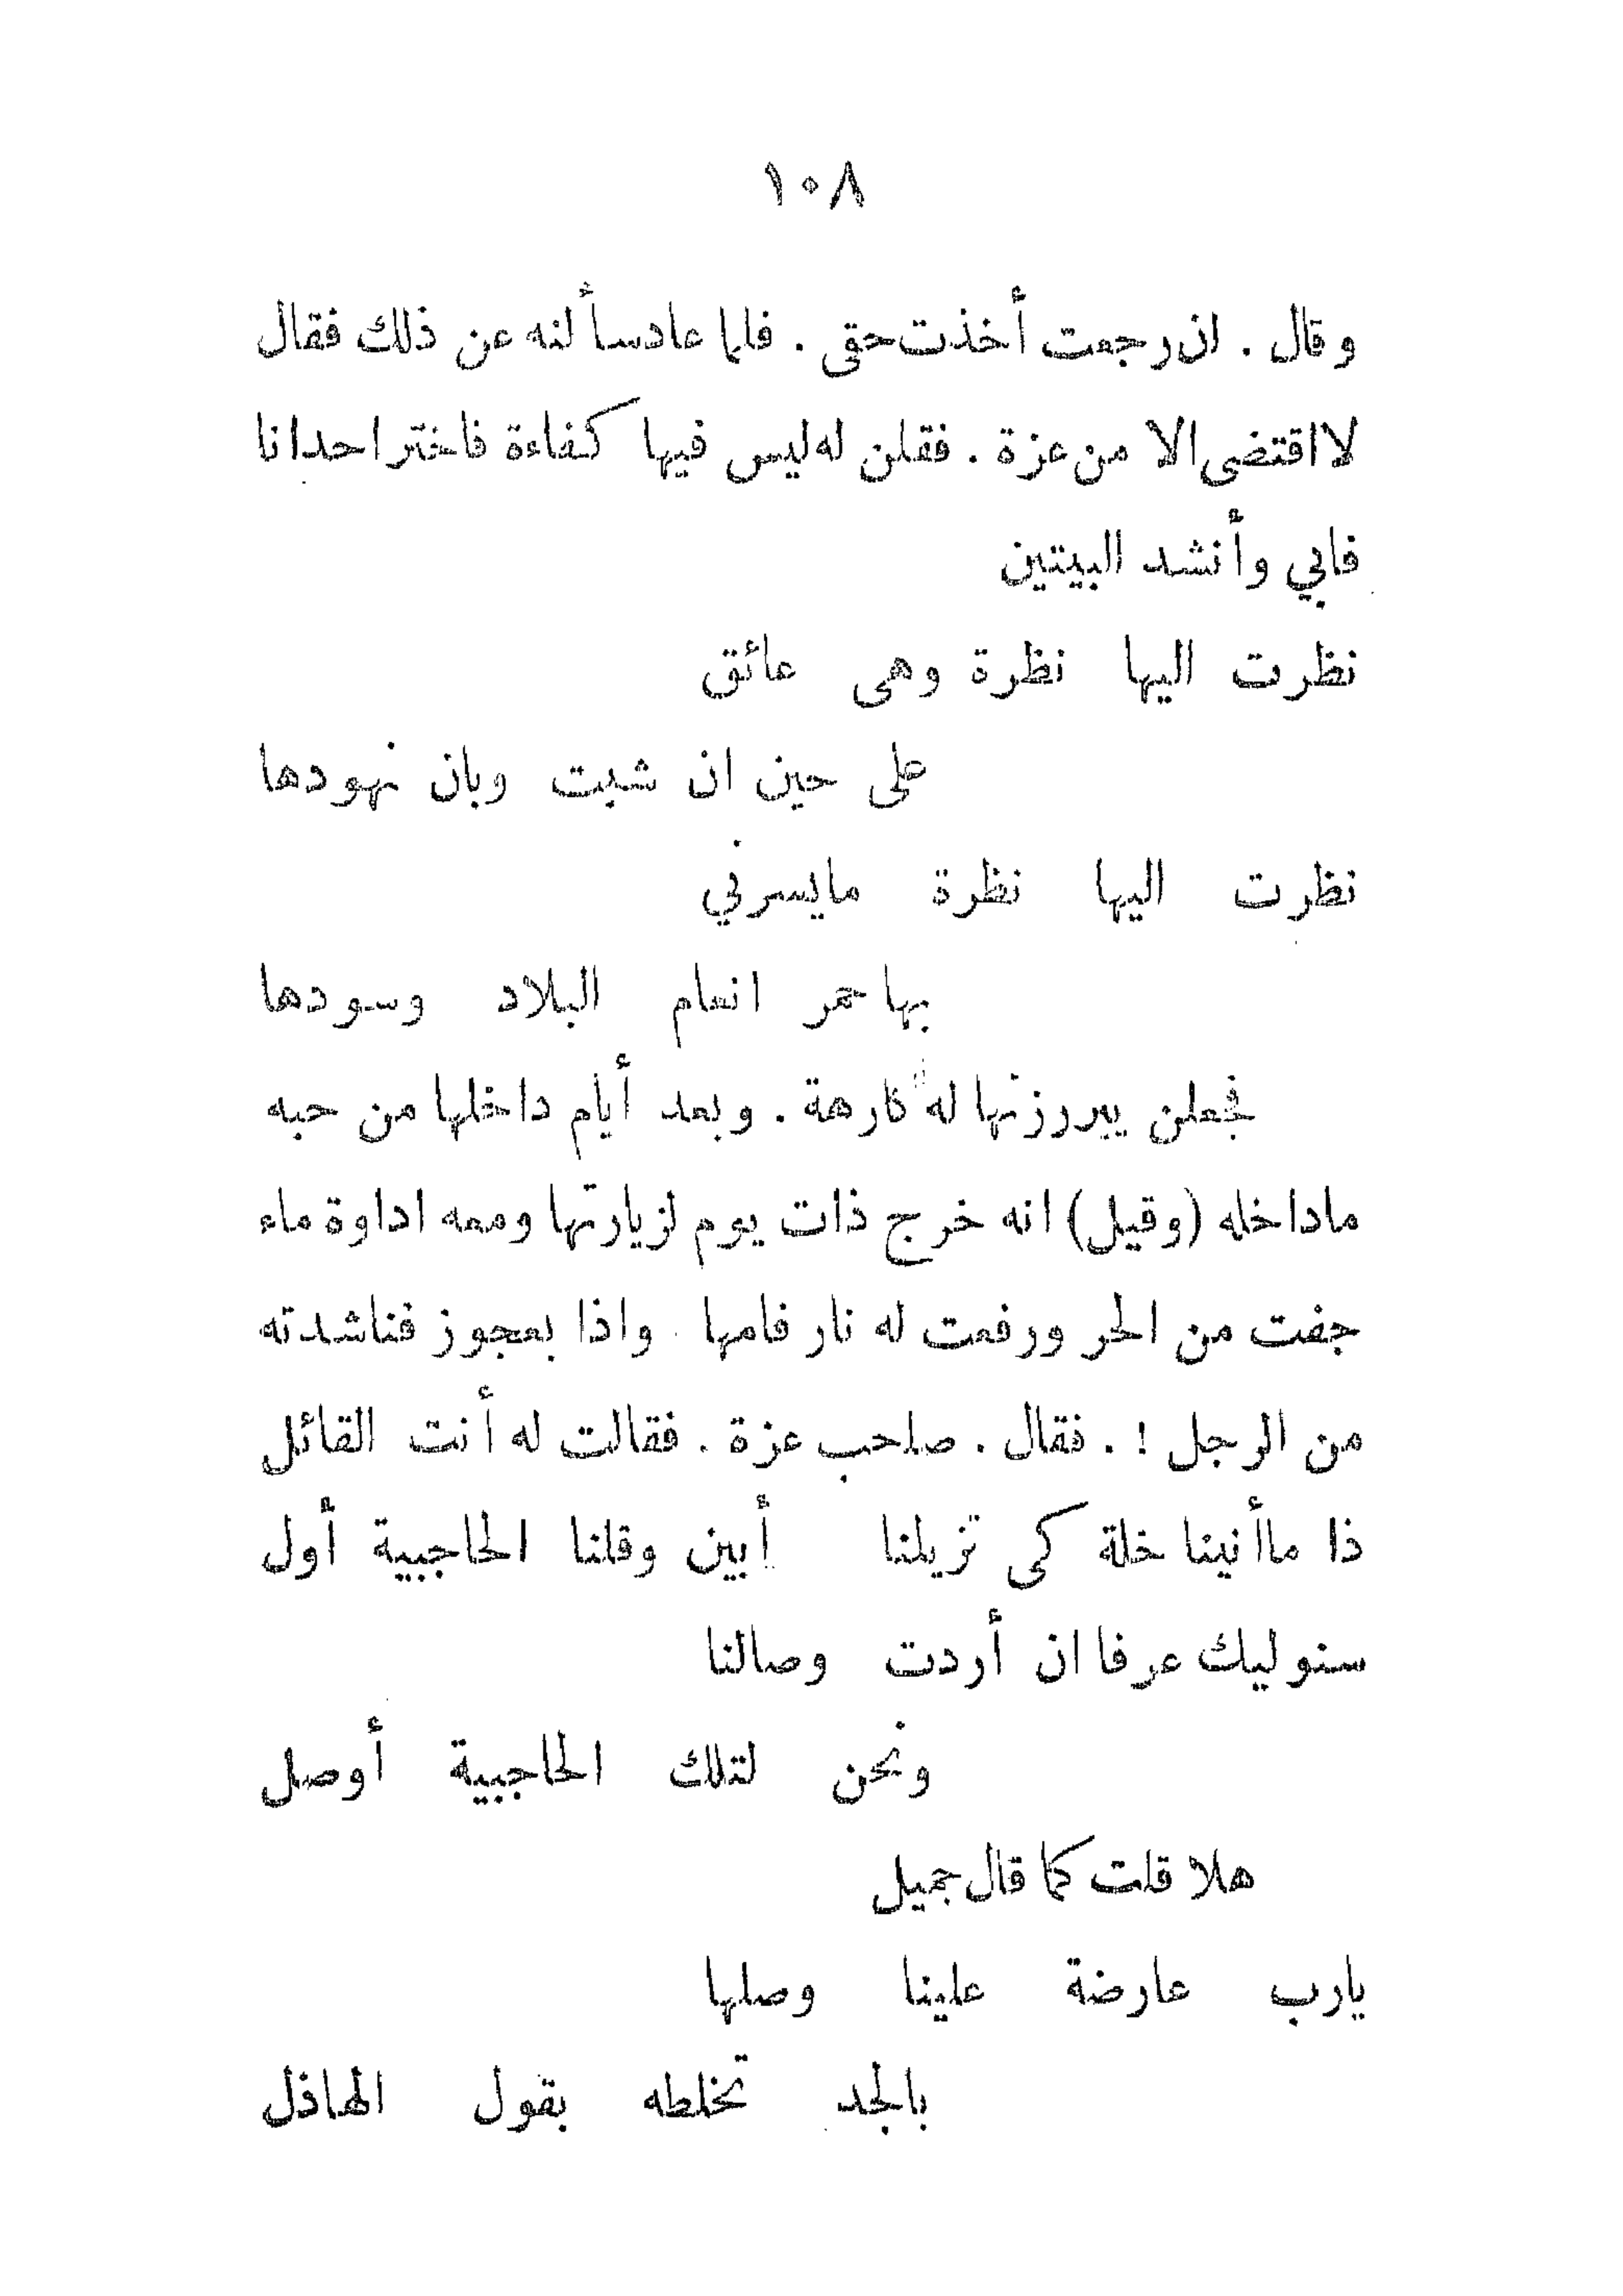 ١٠٨
وقال . ان رجعت أخذت حقى . فلما عاد سألنه عن ذلك فقال
لا اقتضى الا من عزة . فقلن له ليس فيها كفاءة فاختر احدانا
فابي وأنشد البيتين
نظرت اليها نظرة وهى عائق
على حين ان شبت وبان نهودها
نظرت اليها نظرة مايسرني
بها حمر انعام البلاد وسودها
فجعلن يبرزنها له كارهة . وبعد أيام داخلها من حبه
ماداخله (وقيل) انه خرج ذات يوم لزيارتها ومعه اداوة ماء
جفت من الحر ورفعت له نار فامها . واذا بعجوز فناشدته
من الرجل ! . فقال . صاحب عزة . فقالت له أنت القائل
ذا ماأنينا خلة كى تزيلنا أبين وقلنا الحاجبية أول
سنوليك عرفا ان أردت وصالنا
ونحن لتلك الحاجبية أوصل
هلا قلت كما قال جميل
يارب عارضة علينا وصلها
بالجد تخلطه بقول الهاذل